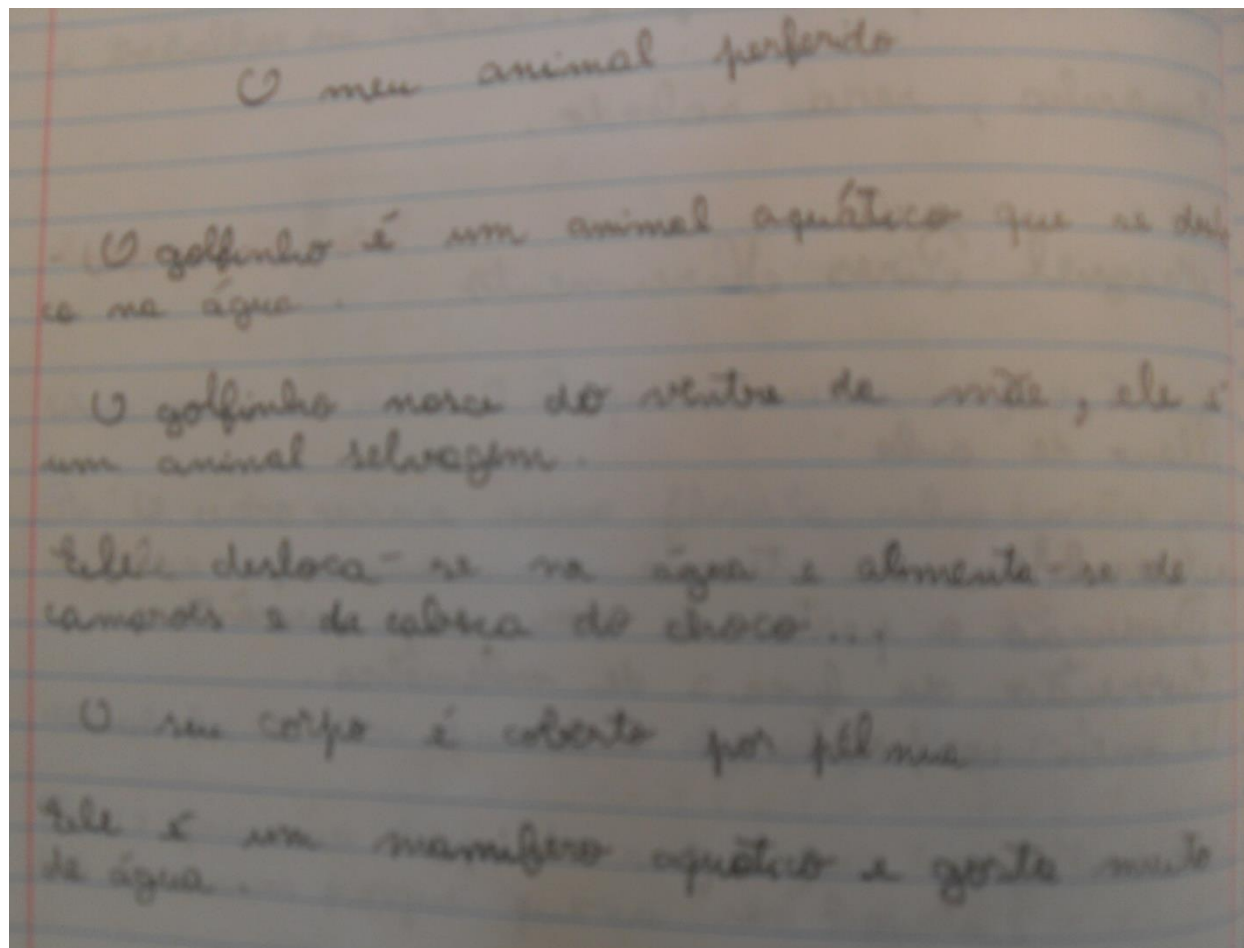 O meu animal perferido
O golfinho é um animal aquático que se deslo
ca na água.
O golfinho nasce do ventre da mãe, ele é
um animal selvagem.
Ele desloca-se na água e alimenta-se de
camarois e da cabeça do choco...
O seu corpo é coberto por pél nua
Ele é um mamifero aquático e gosta muito
de água.